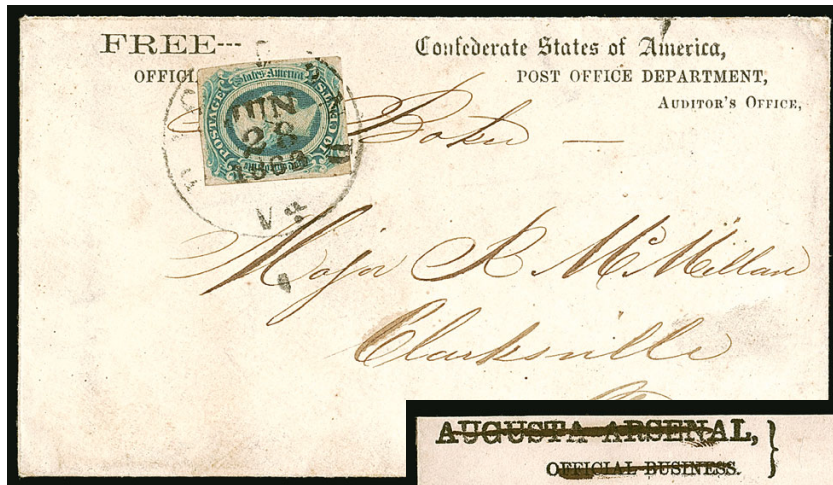 FREE---
OFFICI
Confederate States of America,
POST OFFICE DEPARTMENT,
AUDITOR'S OFFICE,
States America
POSTAGE
JUN
28
1863
Va
Major R McMillan
Clarksville
AUGUSTA ARSENAL,
OFFICIAL BUSINESS.